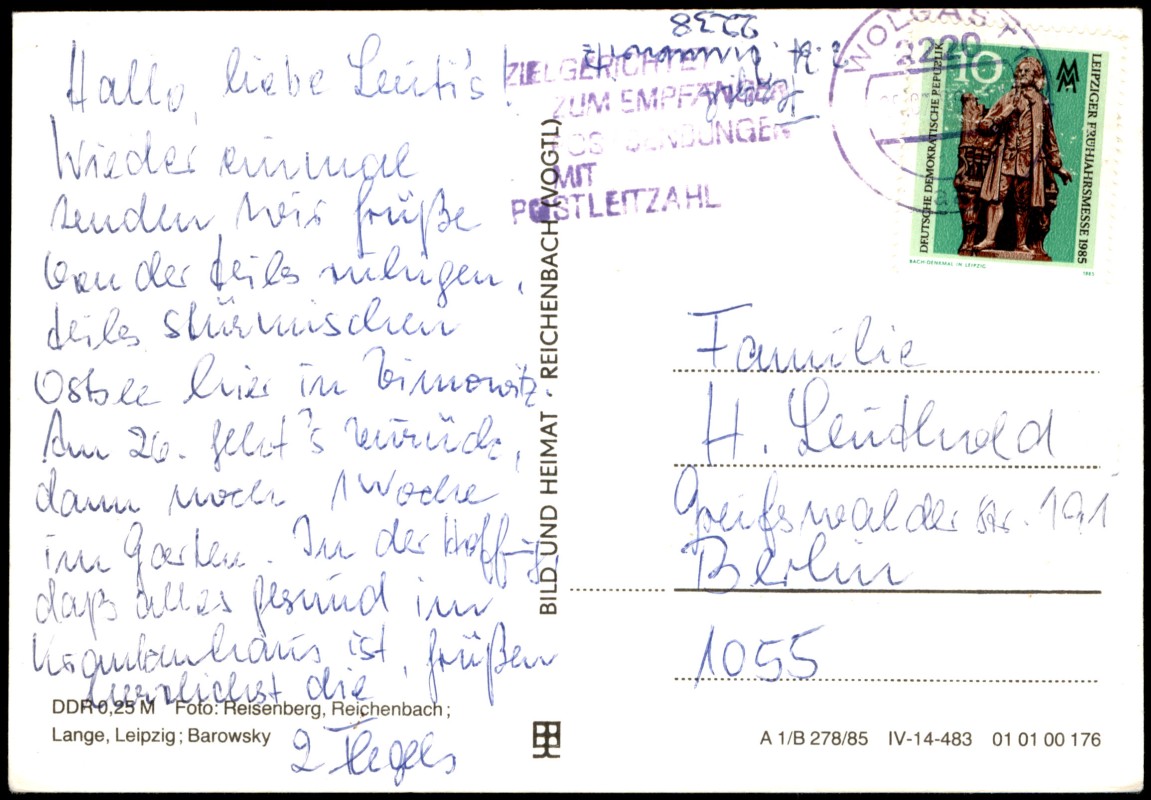 Hallo, liebe Leuti's!
Wieder einmal
senden wir Grüße
von der teils ruhigen,
teils stürmischen
Ostsee hier in Zinnowitz.
Am 26. geht's zurück,
dann noch 1 Woche
im Garten. In der Hoffng,
daß alles gesund im
Krankenhaus ist, grüßen
herzlichst die
2 Flegels
DDR 0,25 M Foto: Reisenberg, Reichenbach;
Lange, Leipzig; Barowsky
BILD UND HEIMAT REICHENBACH (VOGTL)
2238
ZIELGERICHTET
ZUM EMPFÄNGER
POSTSENDUNGEN
MIT
POSTLEITZAHL
WOLGAST 1
2220
DEUTSCHE DEMOKRATISCHE REPUBLIK
10
MM
LEIPZIGER FRÜHJAHRSMESSE 1985
BACH-DENKMAL IN LEIPZIG
1985
Familie
H. Leuthold
Greifswalder Str. 191
Berlin
1055
A 1/B 278/85 IV-14-483 01 01 00 176